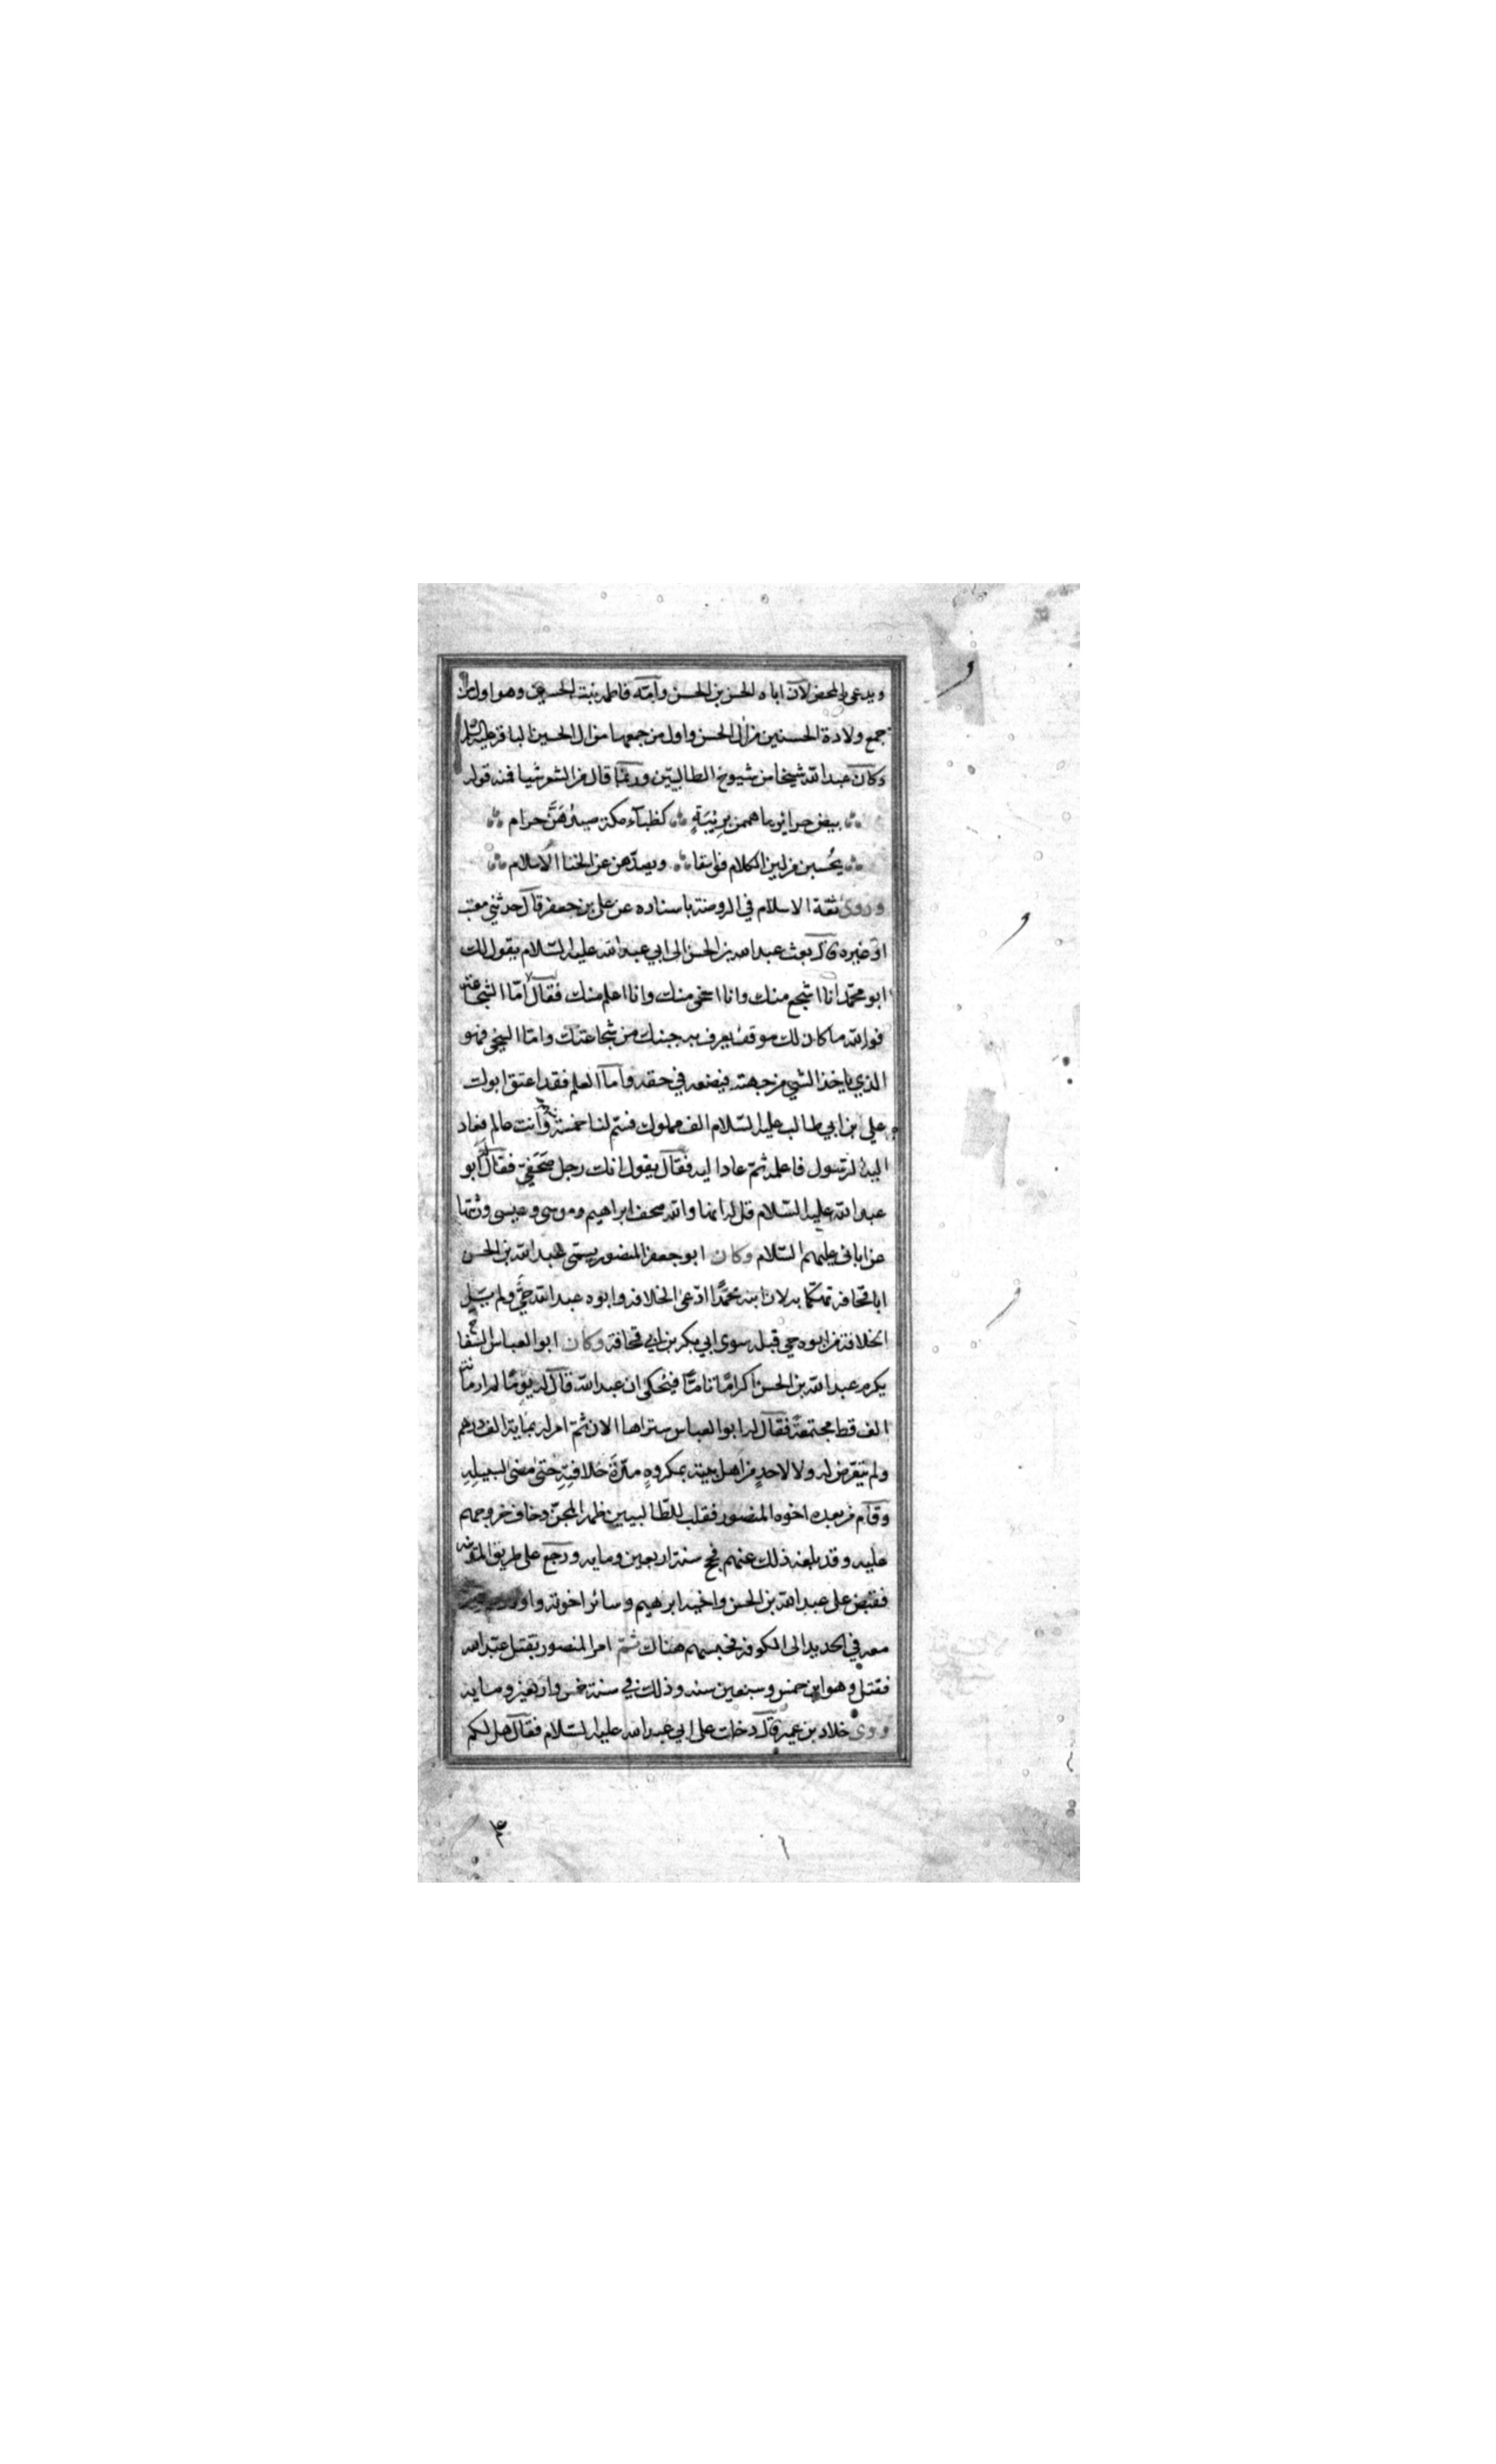 ويدعى بالمحض لان اباه الحسن بن الحسن وامّه فاطمة بنة الحسين وهو اول من
جمع ولادة الحسنين من ال الحسن واول من جمعها من ال الحسين الباقر عليه السلام
وكان عبد الله شيخا من شيوخ الطالبيّين وربّما قال من الشعر شيا فمنه قوله
بيض حراير ما هممن بريبَةٍ كظباء مكة صيدُهُنَّ حرام
يُحسبن من لين الكلام فواسقا ويصدّهن عن الخنا الاسلام
وروى ثقة الاسلام في الروضة باسناده عن علي بن جعفر قال حدثني معتب
او غيره قال بعث عبد الله بن الحسن الى ابي عبد الله عليه السّلام يقول لك
ابو محمّد انا اشجع منك وانا اسخى منك وانا اعلم منك فقال امّا الشجاعة
فوالله ما كان لك موقف يعرف به جبنك من شجاعتك وامّا السخي فهو
الذي ياخذ الشي من جهته فيضعه في حقه وامّا العلم فقد اعتق ابوك
علي بن ابي طالب عليه السّلام الف مملوك فسّم لنا خمسة وانت عالم فعاد
اليه الرسول فاعلمه ثمّ عاد اليه فقال يقول انك رجل صَحَفيّ فقال ابو
عبد الله عليه السّلام قل له انها والله صحف ابراهيم وموسى وعيسى ورثتها
عن اباني عليهم السّلام وكان ابو جعفر المنصور يسمّى عبد الله بن الحسن
ابا قحافة تهكّما به لان ابنه محمّدًا ادّعى الخلافة وابوه عبد الله حيّ ولم يل
الخلافة من ابوه حي قبله سوى ابي بكر بن ابي قحافة وكان ابو العباس السفاح
يكرم عبد الله بن الحسن اكرامًا تامًّا فيُحكى ان عبد الله قال له يومًا لم ار مائة
الف قط مجتمعةً فقال له ابو العباس ستراها الان ثمّ امر له بماية الف درهم
ولم يتعرّض له ولا لاحدٍ من اهل بيته بمكروهٍ مدّة خلافتِهِ حتى مضى لسبيلِهِ
وقام من بعده اخوه المنصور فقلب للطّالبيين ظهر المجنّ وخاف خروجهم
عليه وقد بلغه ذلك عنهم فحج سنة اربعين وماية ورجع على طريق المدينة
فقبض على عبد الله بن الحسن واخيه ابرهيم وساير اخوته
معه في الحديد الى الكوفة فحبسهم هناك ثمّ امر المنصور بقتل عبد الله
فقتل وهو ابن خمس وسبعين سنة وذلك في سنة خمس واربعين وماية
وروى خلاد بن عمير قال دخلت على ابي عبد الله عليه السّلام فقال هل لكم